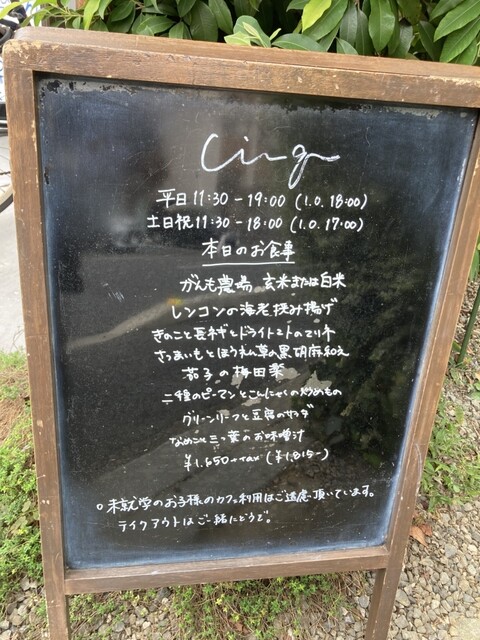 cing
平日 11:30 - 19:00 (l.o. 18:00)
土日祝 11:30 - 18:00 (l.o. 17:00)
本日のお食事
がんも農場 玄米または白米
レンコンの海老挟み揚げ
きのこと長ネギとドライトマトのマリネ
さつまいもとほうれん草の黒胡麻和え
茄子の梅田楽
二種のピーマンとこんにゃくの炒めもの
グリーンリーフと豆腐のサラダ
なめこと三つ葉のお味噌汁
¥1.650+tax (¥1,815-)
○未就学のお子様のカフェ利用はご遠慮頂いています。
テイクアウトはご一緒にどうぞ。